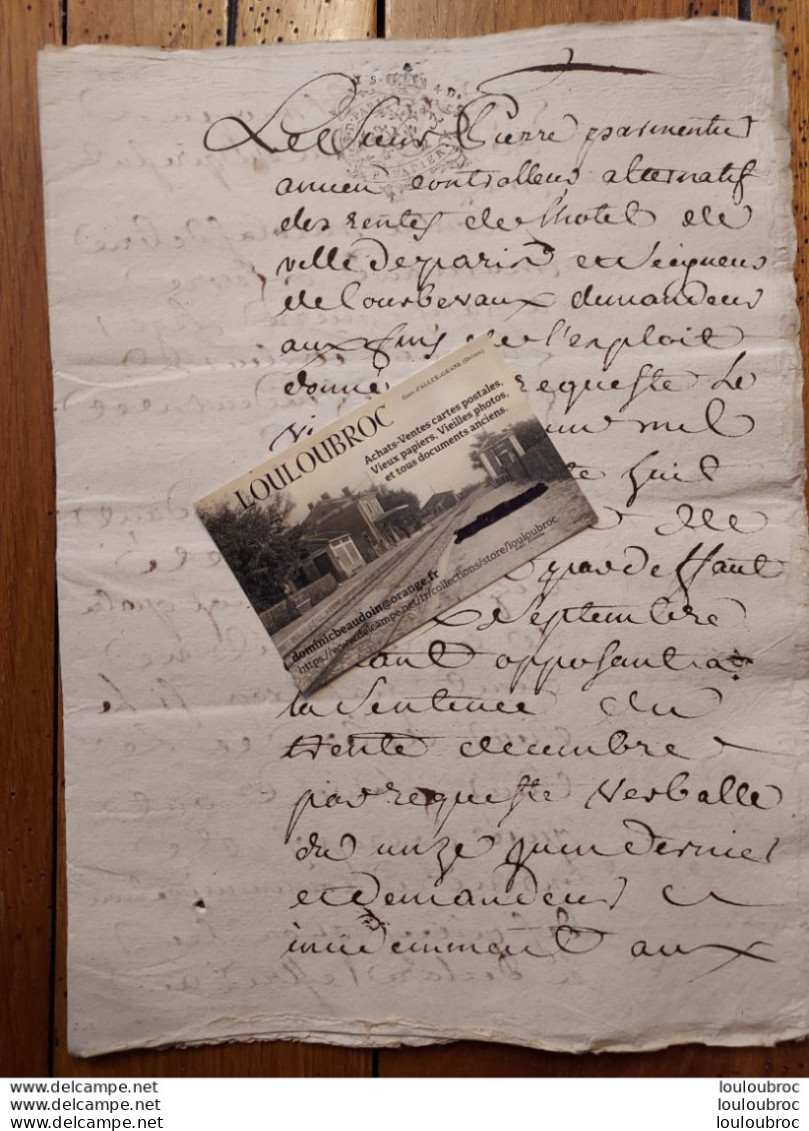 Le Sieur Pierre parmentier
ancien controlleur alternatif
des rentes de lhotel de
ville de paris et Seigneur
de Courbevaux demandeur
aux fins de l'exploit
donné requeste Le
vi un mil
te huit
de
par deffaut
x Septembre
ant opposant a
la Sentence du
trente decembre
par requeste Verballe
du unze juin dernier
et demandeur
incidemment aux
LOULOUBROC
Gare d'ALLEX-GRANE (Drôme)
Achats-Ventes cartes postales,
Vieux papiers, Vieilles photos,
et tous documents anciens.
dominicbeaudoin@orange.fr
https://www.delcampe.net/fr/collections/store/louloubroc
louloubroc
louloubroc
louloubroc
louloubroc
louloubroc
louloubroc